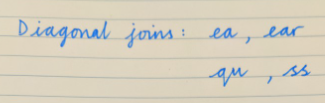 Diagonal joins: ea, ear
qu, ss